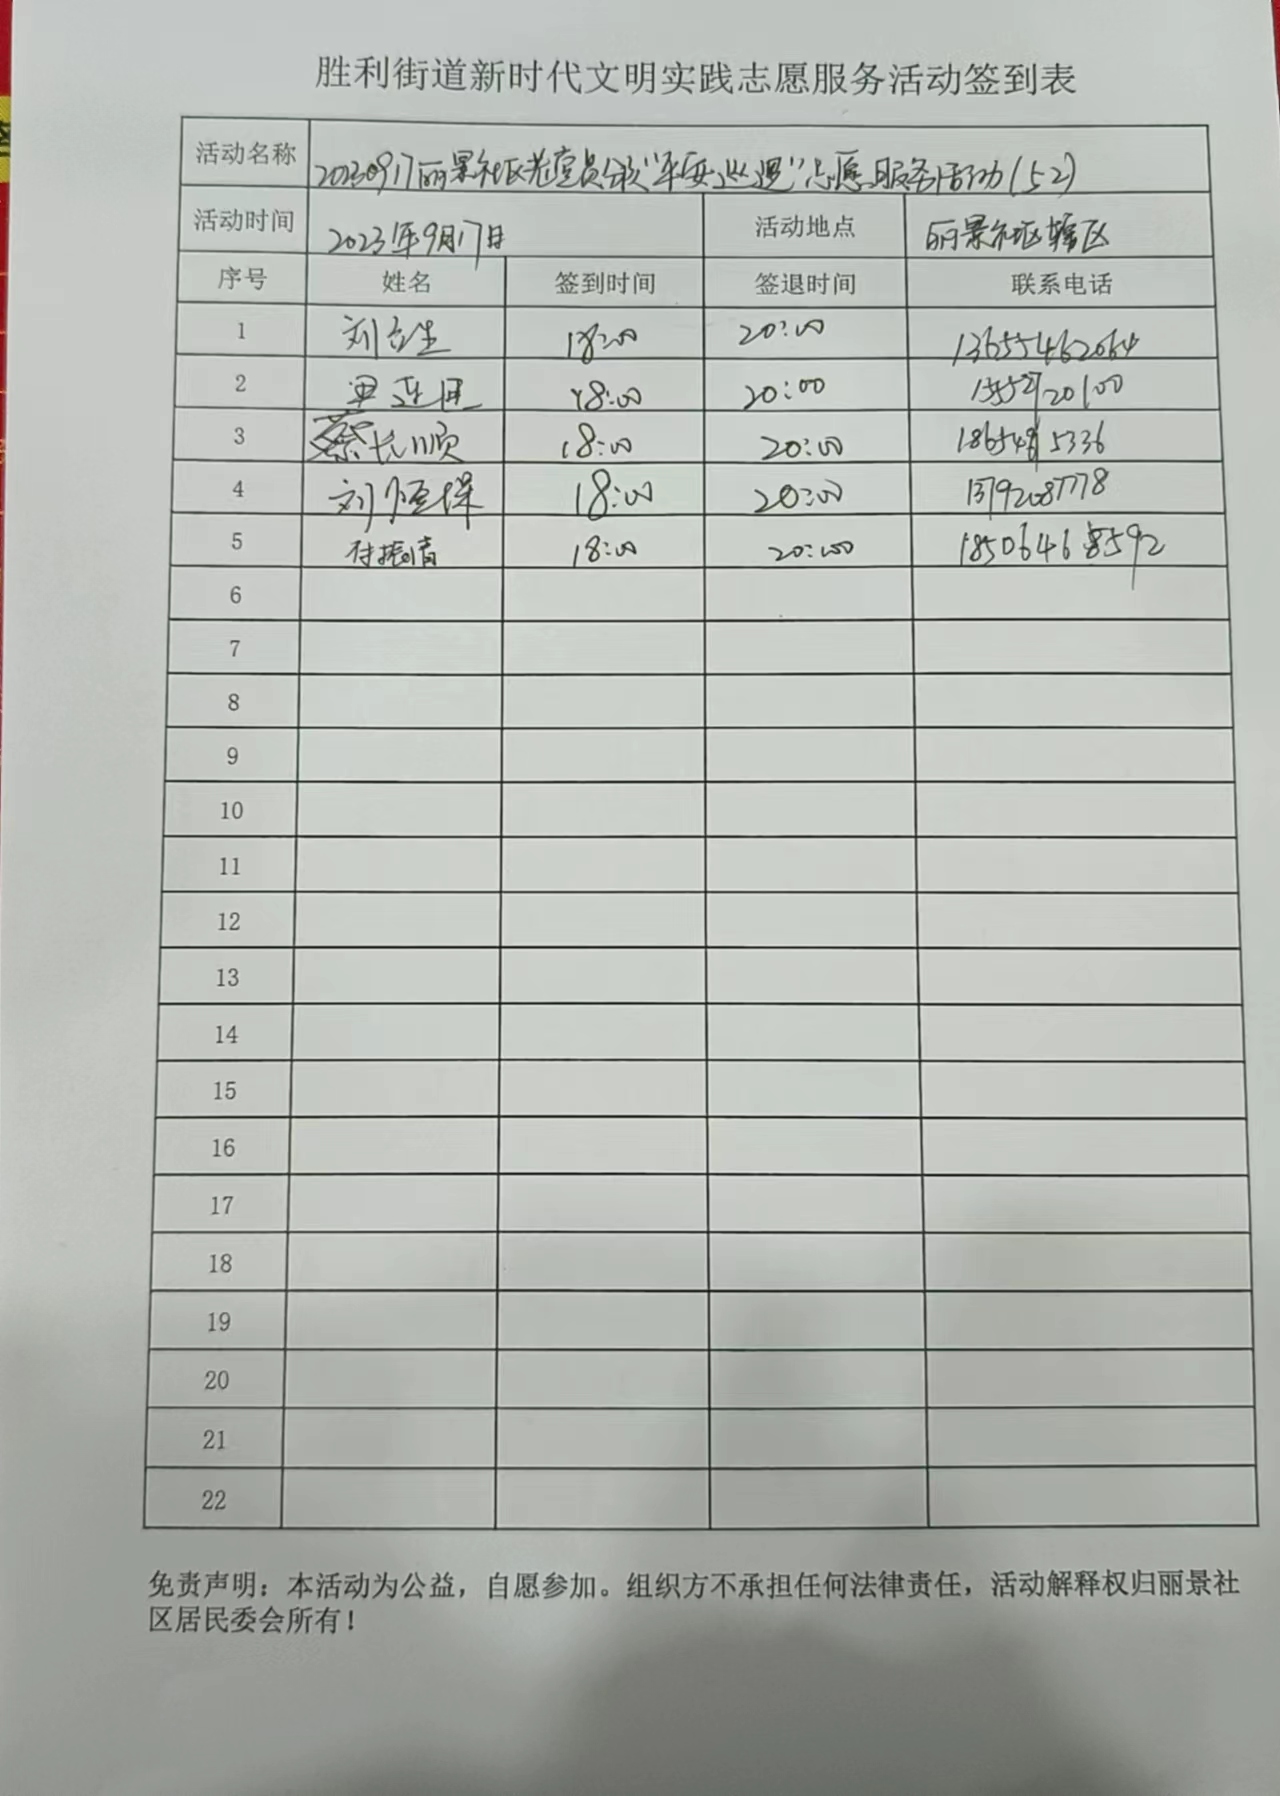 胜利街道新时代文明实践志愿服务活动签到表
活动名称 20230917丽景社区老党员分队"平安巡逻"志愿服务活动(52)
活动时间 2023年9月17日 活动地点 丽景社区辖区
序号 姓名 签到时间 签退时间 联系电话
1 刘 生 18:00 20:00 13655462064
2 18:00 20:00
3 蔡长顺 18:00 20:00
4 刘恒保 18:00 20:00 13792087778
5 付振清 18:00 20:00 18506468592
6
7
8
9
10
11
12
13
14
15
16
17
18
19
20
21
22
免责声明：本活动为公益，自愿参加。组织方不承担任何法律责任，活动解释权归丽景社
区居民委会所有！